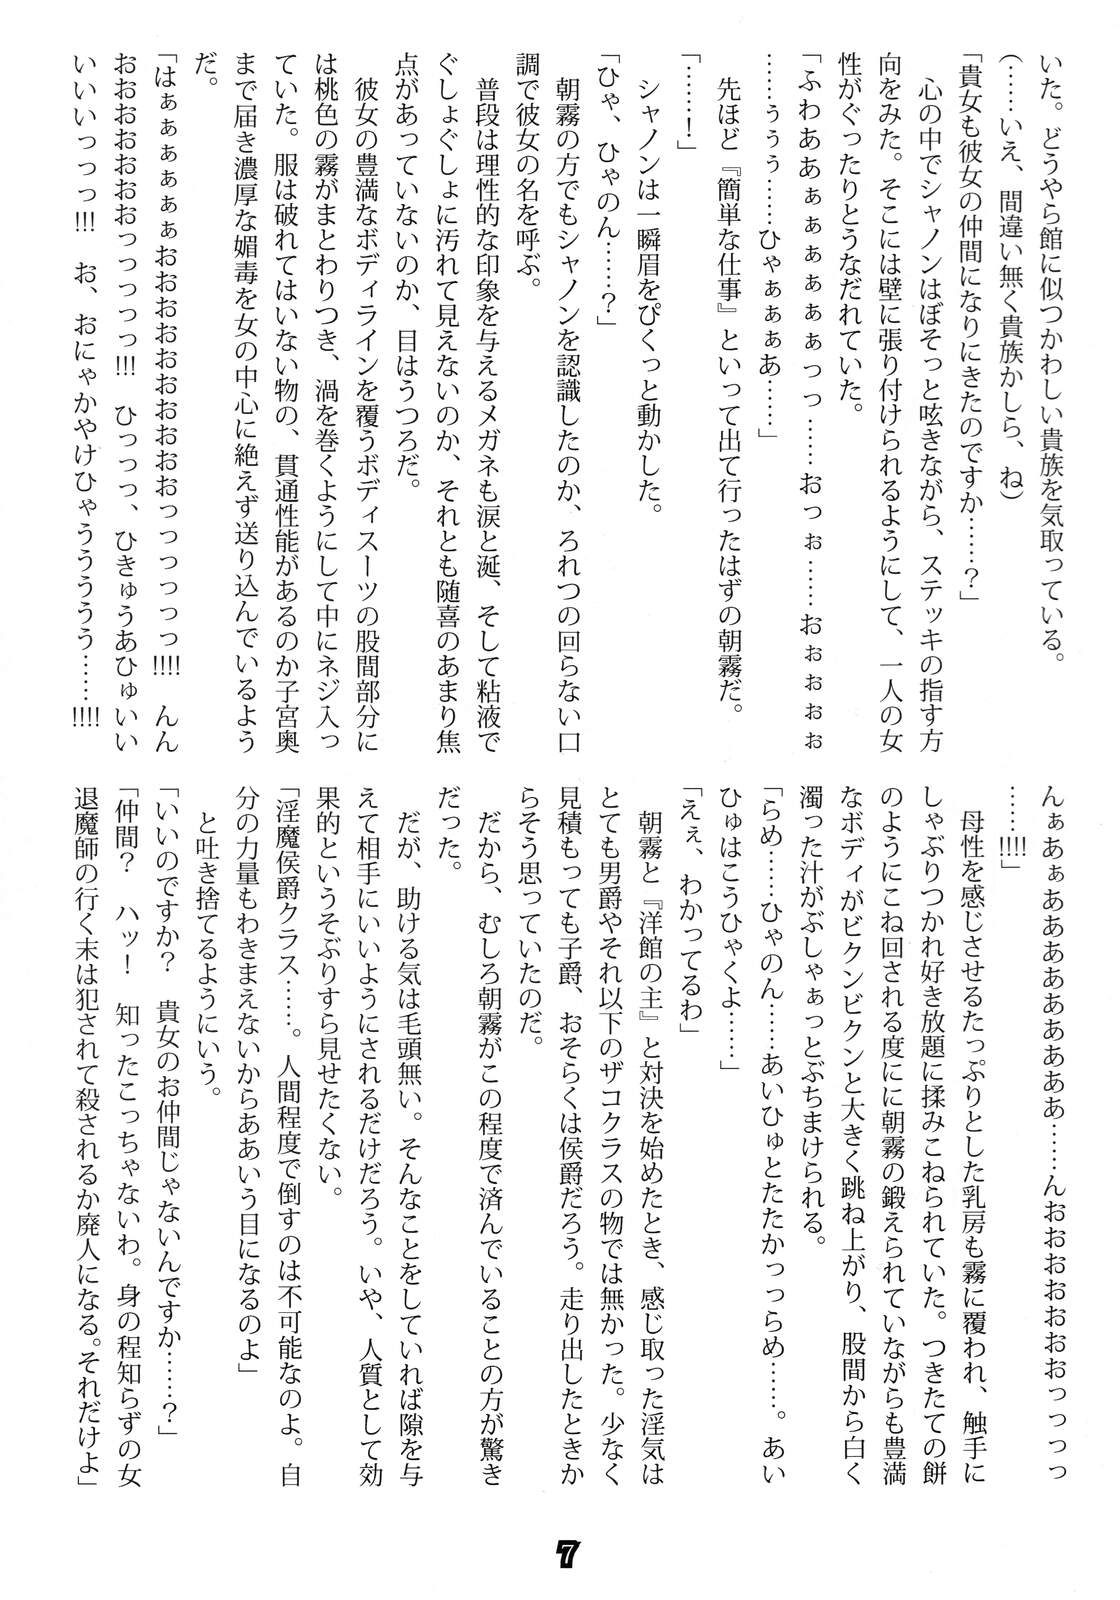 いた。どうやら館に似つかわしい貴族を気取っている。
(……いえ、間違い無く貴族かしら、ね)
「貴女も彼女の仲間になりにきたのですか……?」
心の中でシャノンはぼそっと呟きながら、ステッキの指す方
向をみた。そこには壁に張り付けられるようにして、一人の女
性がぐったりとうなだれていた。
「ふわああぁぁぁぁぁぁっっ……おっぉ……おぉぉぉぉ
……ぅぅぅ……ひゃぁぁぁあ……」
先ほど『簡単な仕事』といって出て行ったはずの朝霧だ。
「……!」
シャノンは一瞬眉をぴくっと動かした。
「ひゃ、ひゃのん……?」
朝霧の方でもシャノンを認識したのか、ろれつの回らない口
調で彼女の名を呼ぶ。
普段は理性的な印象を与えるメガネも涙と涎、そして粘液で
ぐしょぐしょに汚れて見えないのか、それとも随喜のあまり焦
点があっていないのか、目はうつろだ。
彼女の豊満なボディラインを覆うボディスーツの股間部分に
は桃色の霧がまとわりつき、渦を巻くようにして中にネジ入っ
ていた。服は破れてはいない物の、貫通性能があるのか子宮奥
まで届き濃厚な媚毒を女の中心に絶えず送り込んでいるよう
だ。
「はぁぁぁぁぁぁおおおおおおおおおおっっっっっっ!!!! んん
おおおおおおおおっっっっっっ!!! ひっっっ、ひきゅうあひゅいい
いいいいっっっ!!! お、おにゃかやけひゃううううう……!!!!
んぁあぁああああああああああ……んおおおおおおおおっっっっ
……!!!!」
母性を感じさせるたっぷりとした乳房も霧に覆われ、触手に
しゃぶりつかれ好き放題に揉みこねられていた。つきたての餅
のようにこね回される度にに朝霧の鍛えられていながらも豊満
なボディがビクンビクンと大きく跳ね上がり、股間から白く
濁った汁がぶしゃぁっとぶちまけられる。
「らめ……ひゃのん……あいひゅとたたかっっらめ……。あい
ひゅはこうひゃくよ……」
「えぇ、わかってるわ」
朝霧と『洋館の主』と対決を始めたとき、感じ取った淫気は
とても男爵やそれ以下のザコクラスの物では無かった。少なく
見積もっても子爵、おそらくは侯爵だろう。走り出したときか
らそう思っていたのだ。
だから、むしろ朝霧がこの程度で済んでいることの方が驚き
だった。
だが、助ける気は毛頭無い。そんなことをしていれば隙を与
えて相手にいいようにされるだけだろう。いや、人質として効
果的というそぶりすら見せたくない。
「淫魔侯爵クラス……。人間程度で倒すのは不可能なのよ。自
分の力量もわきまえないからああいう目になるのよ」
と吐き捨てるようにいう。
「いいのですか? 貴女のお仲間じゃないんですか……?」
「仲間? ハッ! 知ったこっちゃないわ。身の程知らずの女
退魔師の行く末は犯されて殺されるか廃人になる。それだけよ」
7